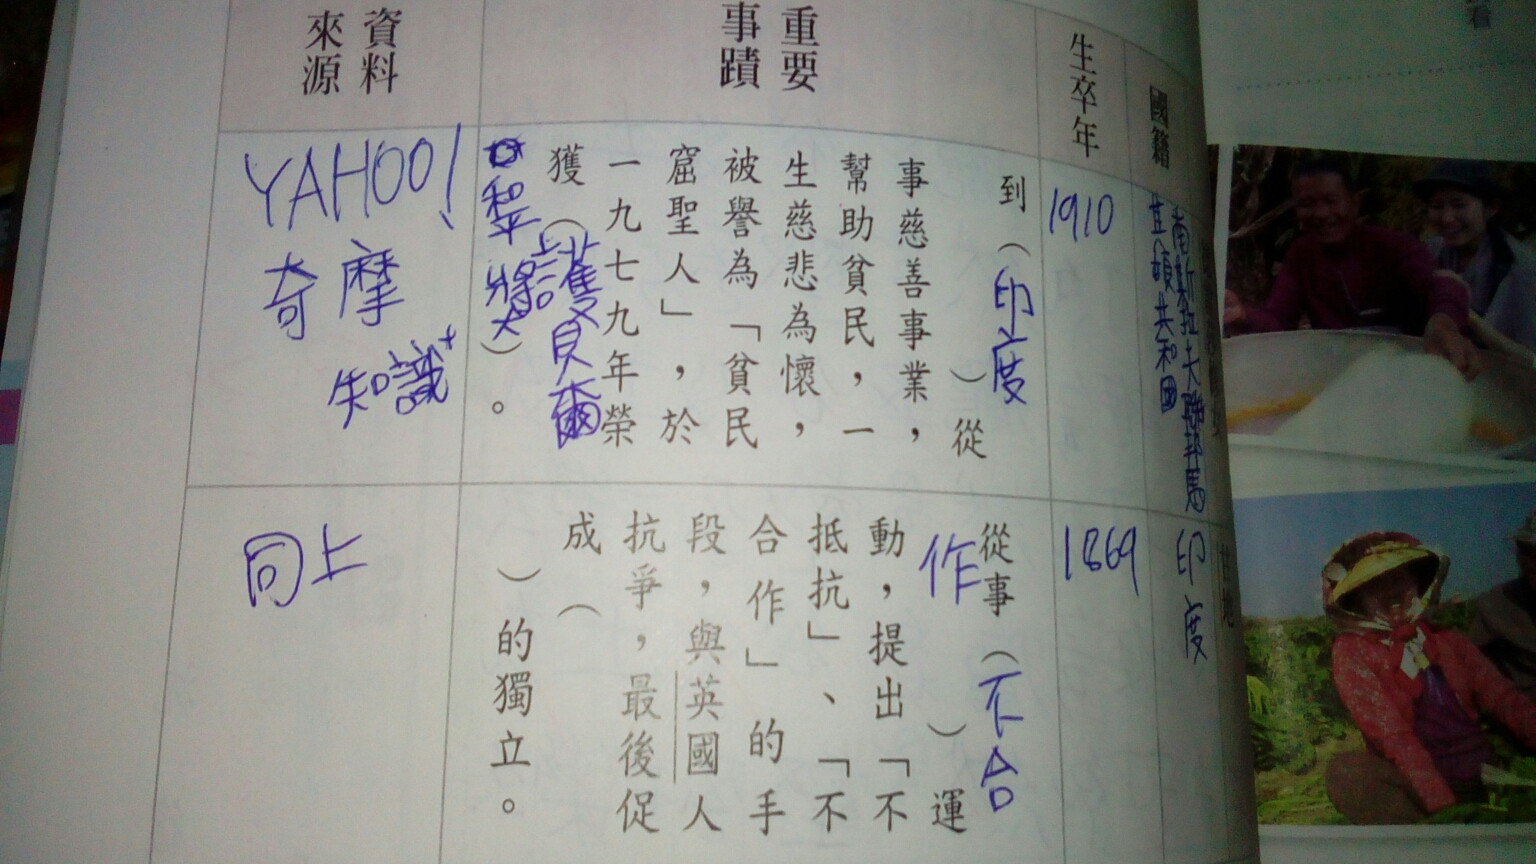 國籍
南斯拉夫聯邦馬
其頓共和國
印度
生卒年
1910
1869
重要
事蹟
到(印度)從
事慈善事業，
幫助貧民，一
生慈悲為懷，
被譽為「貧民
窟聖人」，於
一九七九年榮
獲(諾貝爾
和平獎)。
從事(不合
作)運
動，提出「不
抵抗」、「不
合作」的手
段，與英國人
抗爭，最後促
成(
)的獨立。
資料
來源
YAHOO!
奇摩
知識+
同上